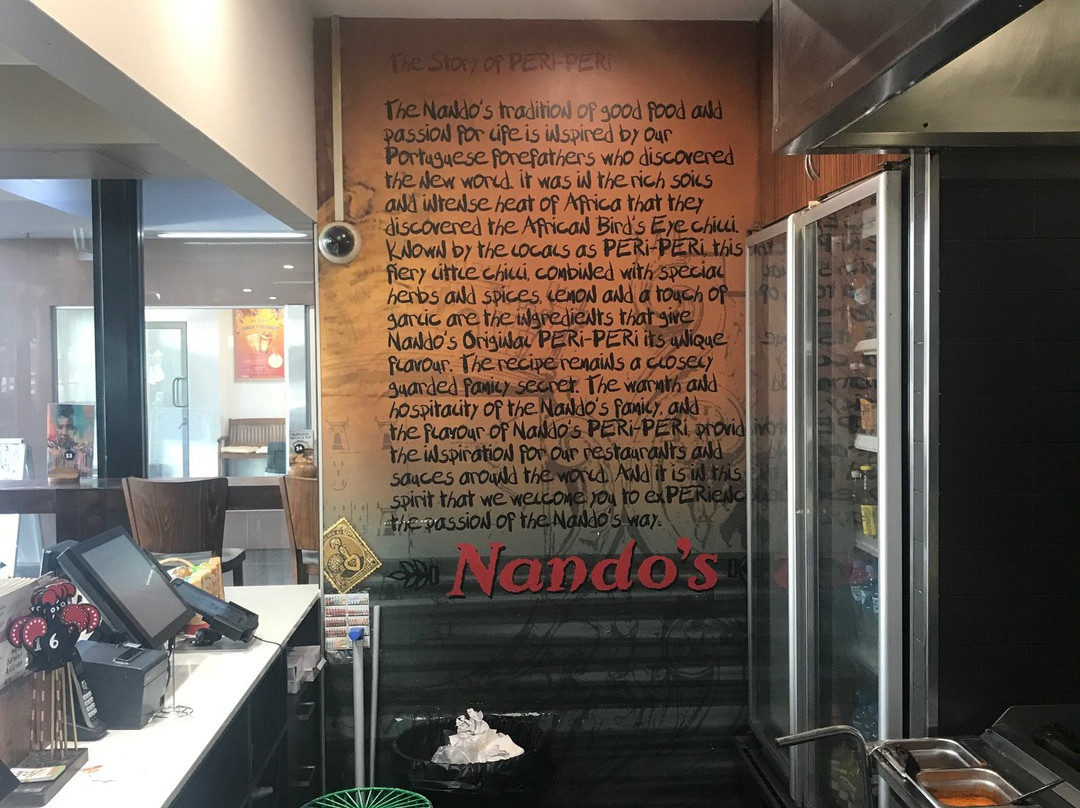 The Story of PERi-PERi
The Nando's tradition of good food and
passion for life is inspired by our
Portuguese forefathers who discovered
the New World. It was in the rich soils
and intense heat of Africa that they
discovered the African Bird's Eye chilli.
Known by the locals as PERi-PERi, this
fiery little chilli, combined with special
herbs and spices, lemon and a touch of
garlic are the ingredients that give
Nando's Original PERi-PERi its unique
flavour. The recipe remains a closely
guarded family secret. The warmth and
hospitality of the Nando's family, and
the flavour of Nando's PERi-PERi, provid
the inspiration for our restaurants and
sauces around the world. And it is in this
spirit that we welcome you to exPERienc
the passion of the Nando's way.
Nando's
16
13